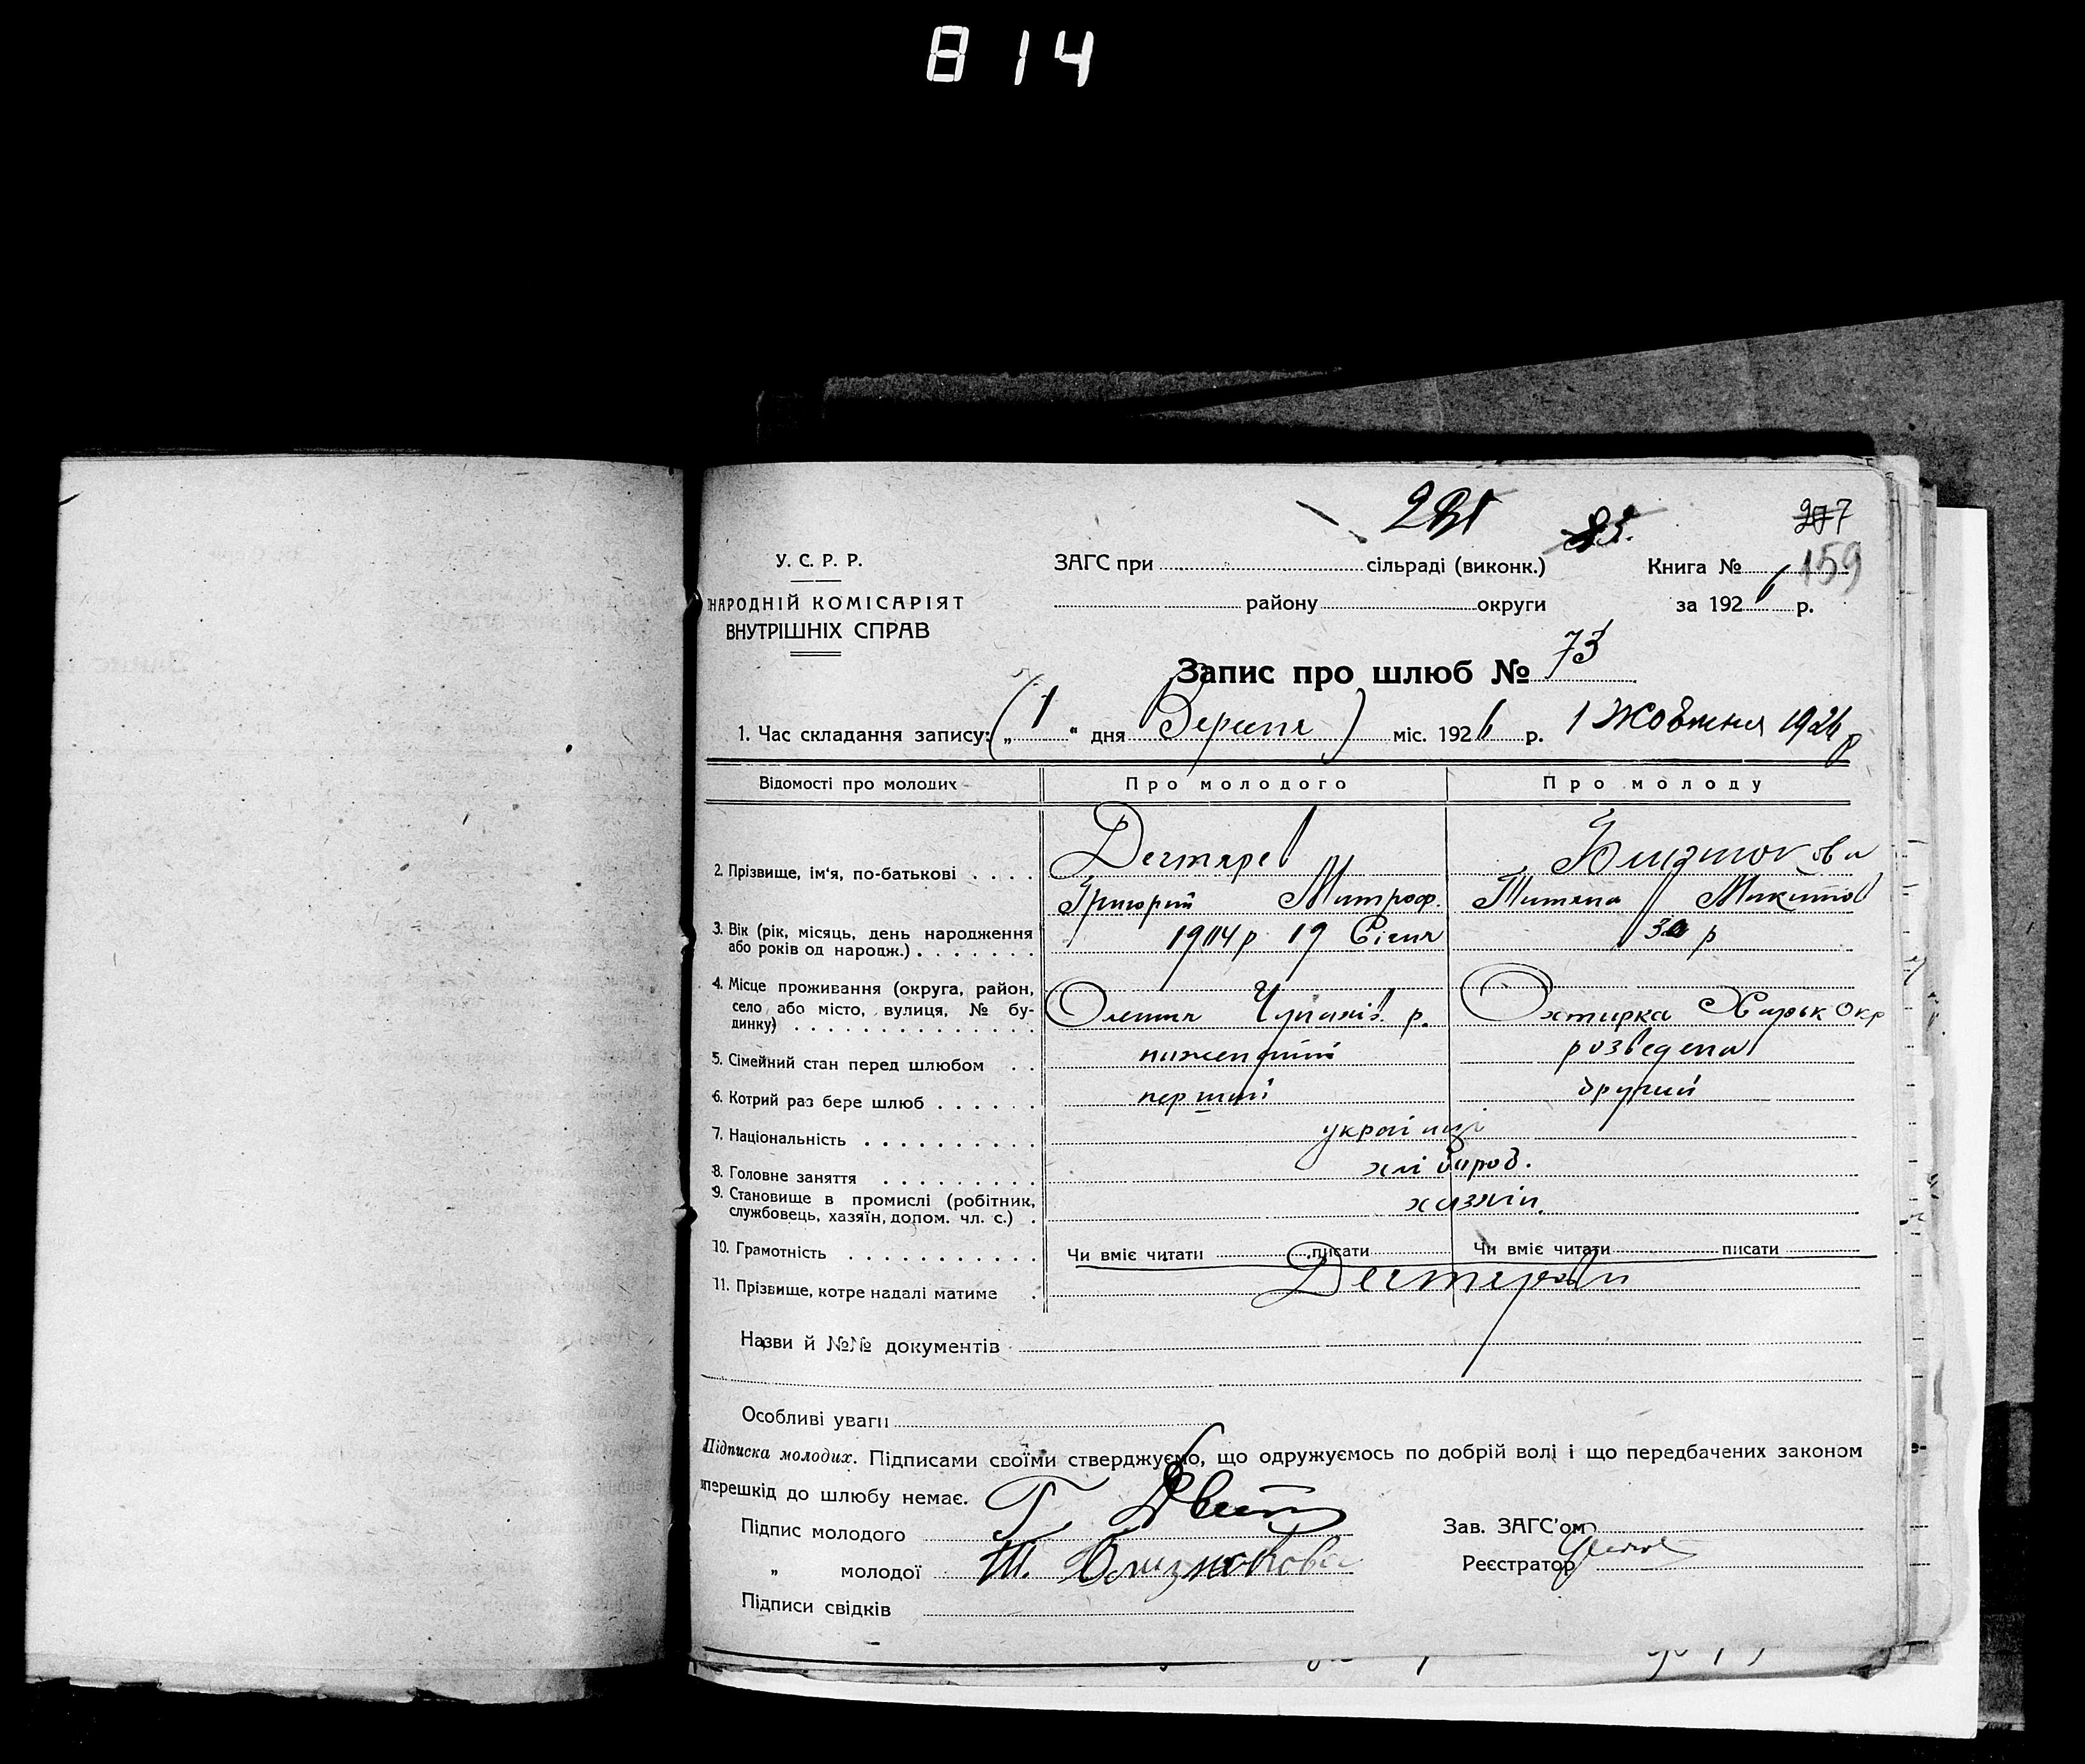 814
231 85. 277
У. С. Р. Р. ЗАГС при сільраді (виконк.) Книга № 159
НАРОДНІЙ КОМІСАРІЯТ району округи за 1926 р.
ВНУТРІШНІХ СПРАВ
Запис про шлюб № 73
1. Час складання запису: („ 1 “ дня Вересня) міс. 1926 р. 1 Жовтня 1926 р
Відомості про молодих Про молодого Про молоду
2. Прізвище, ім'я, по-батькові Дегтярев Близнюкова
Григорий Митроф. Титяна Микитов
3. Вік (рік, місяць, день народження 1904 р 19 Січня 30 р
або років од народж.)
4. Місце проживання (округа, район,
село або місто, вулиця, № бу- р. Охтирка Харьк Окр
динку)
5. Сімейний стан перед шлюбом ниженатий розведена
6. Котрий раз бере шлюб перший другий
7. Національність україниці
8. Головне заняття хлібород.
9. Становище в промислі (робітник, хазяїн.
службовець, хазяїн, допом. чл. с.)
10. Грамотність Чи вміє читати писати Чи вміє читати писати
11. Прізвище, котре надалі матиме Дегтярови
Назви й №№ документів
Особливі уваги
Підписка молодих. Підписами своїми стверджуємо, що одружуємось по добрій волі і що передбачених законом
перешкід до шлюбу немає.
Підпис молодого Г. Зав. ЗАГС'ом
„ молодої Т. Близнюкова Реєстратор
Підписи свідків